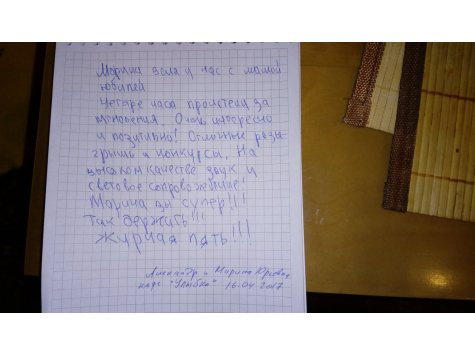 Марина вела у нас с мамой
юбилей
Четыре часа пролетели за
мгновения. Очень интересно
и позитивно! Отличные розы-
грыши и конкурсы, На
высоком качестве звук и
световое сопровожение!
Марина вы супер!!!
Так держать!!!
Жирная пять!!!
Александр и Марина
кафе "Улыбка" 16.04.2017